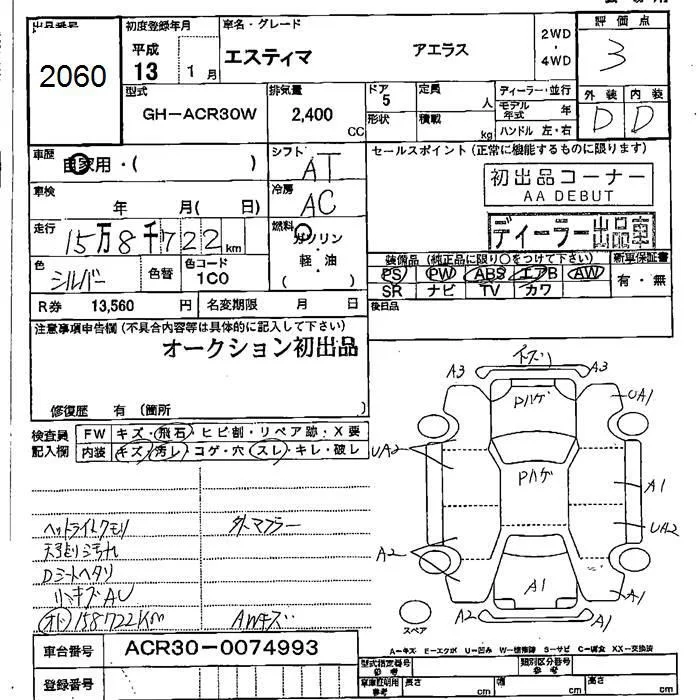 出品番号
2060
初度登録年月
平成
13 1月
車名・グレード
エスティマ アエラス
2WD
・
4WD
評価点
3
外装 内装
D D
型式
GH-ACR30W
排気量
2,400
CC
ドア
5
形状
定員
人
積載
kg
ディーラー・並行
モデル年式 年
ハンドル 左・右
車歴
自家用・( )
シフト
AT
セールスポイント(正常に機能するものに限ります)
初出品コーナー
AA DEBUT
ディーラー出品車
車検
年 月( 日)
冷房
AC
走行
15万8千722km
燃料
ガソリン
軽・油
( )
色
シルバー
色替
色コード
1C0
装備品(純正品に限り○をつけて下さい)
PS PW ABS エアB AW
SR ナビ TV カワ
新車保証書
有・無
R券 13,560 円
名変期限 月 日
後日品
注意事項申告欄(不具合内容等は具体的に記入して下さい)
オークション初出品
修復歴 有(箇所 )
検査員
記入欄
FW キズ・飛石・ヒビ割・リペア跡・X要
内装 キズ・汚レ・コゲ・穴・スレ・キレ・破レ
ヘッドライトクモリ
外マフラー
天張り汚れ
Dシートヘタリ
小キズAU
オド158722Km
AWキズ
A3 A3
Pハゲ
UA1
UA2
Pハゲ
A1
UA2
A2
A1
A1
A2 A1
スペア
A-キズ E-エクボ U-凹み W-補修跡 S-サビ C-腐食 XX-交換済
車台番号
ACR30-0074993
登録番号
型式指定番号
参考
類別区分番号
参考
車庫証明用
参考
長さ cm
幅 cm
高さ cm